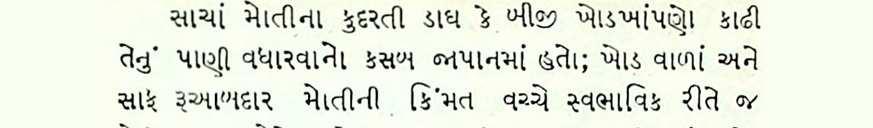 સાચાં મોતીના કુદરતી ડાઘ કે બીજી ખોડખાંપણો કાઢી
તેનું પાણી વધારવાનો કસબ જાપાનમાં હતો; ખોડ વાળાં અને
સાફ રૂઆબદાર મોતીની કિંમત વચ્ચે સ્વભાવિક રીતે જ